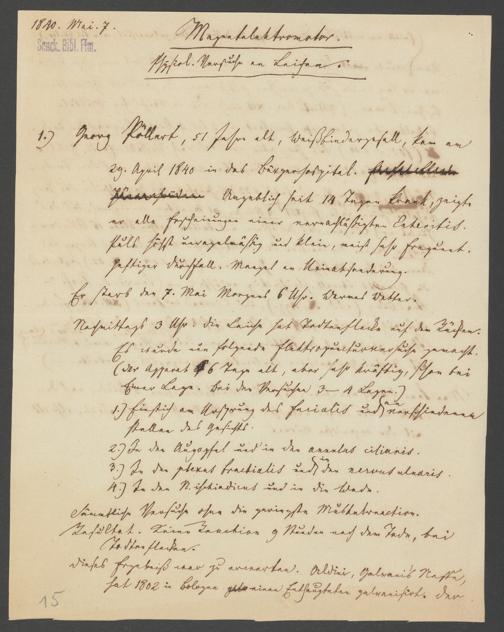 1840. Mai. 7.
Senck. Bibl. Ffm.
Magnetelektromotor.
Physiol. Versuche an Leichen.
1.) Georg Pöllert, 51 Jahre alt, Weißbindergesell, kam am
29. April 1840 in das Bürgerhospital.
Angeblich seit 14 Tagen krank, zeigte
er alle Erscheinungen einer vernachlässigten Enteritis.
Puls höchst unregelmäßig und klein, meist sehr frequent.
Heftiger Durchfall. Mangel an Urinabsonderung.
Er starb den 7. Mai Morgens 6 Uhr. Warmes Wetter.
Nachmittags 3 Uhr die Leiche hat Todtenflecke auf dem Rücken.
Es wurden nun folgende Elektropuncturversuche gemacht.
(der Apparat 6 Tage alt, aber sehr kräftig, schon bei
Einer Lage. Bei den Versuchen 3–4 Lagen.)
1.) Einstich am Ursprung des facialis und verschiedenen
Stellen des Gesichts.
2.) In den Augapfel und in den annulus ciliaris.
3.) In den plexus brachialis und in den nervus ulnaris.
4.) In den N. ischiadicus und in die Wade.
Sämmtliche Versuche ohne die geringste Muskelcontraction.
Resultat. Keine Reaction 9 Stunden nach dem Tode, bei
Todtenflecken.
Dieses Ergebniß war zu erwarten. Aldini, Galvani's Neffe,
hat 1802 in Bologna einen Enthaupteten galvanisirt. Der
15